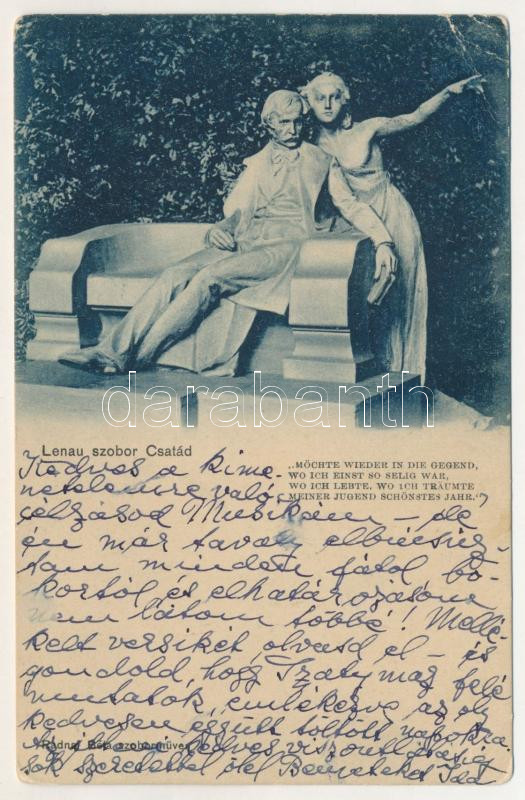 darabanth
Lenau szobor Csatád
„MÖCHTE WIEDER IN DIE GEGEND,
WO ICH EINST SO SELIG WAR,
WO ICH LEBTE, WO ICH TRÄUMTE
MEINER JUGEND SCHÖNSTES JAHR."
Kedves a kime-
netelemre való
célzásod Muzsikám – de
én már tavaly elbúcsúz-
tam minden fától bo-
kortól és elhatározásom
nem látom többé! Mellé-
kelt versikét olvasd el – és
gondold, hogy felé
mutatok, emlékezve az oly
kedvesen együtt töltött napokra
kedves viszontlátásig
sok szeretettel ölel Benneteket Ida
Radnai Béla szoborműve